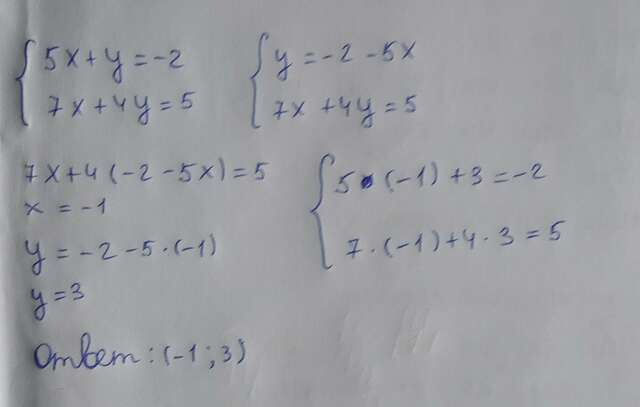 { 5x+y=-2
7x+4y=5
{ y=-2-5x
7x+4y=5
7x+4(-2-5x)=5
x=-1
y=-2-5·(-1)
y=3
{ 5·(-1)+3=-2
7·(-1)+4·3=5
Ответ: (-1;3)